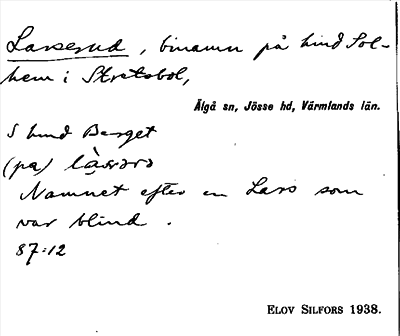 Larserud, binamn på hmd Sol-
hem i Stretsbol,
Älgå sn, Jösse hd, Värmlands län.
S hmd Berget
(på)
Namnet efter en Lars som
var blind.
87:12
ELOV SILFORS 1938.